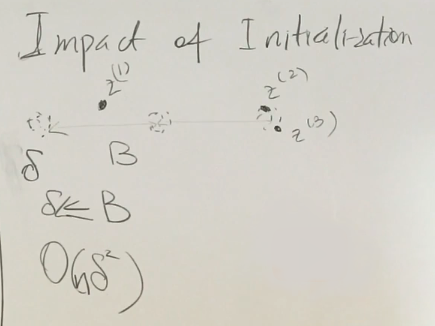 Impact of Initialization
z^(1)
z^(2)
z^(3)
δ B
δ ≤ B
O(nδ²)